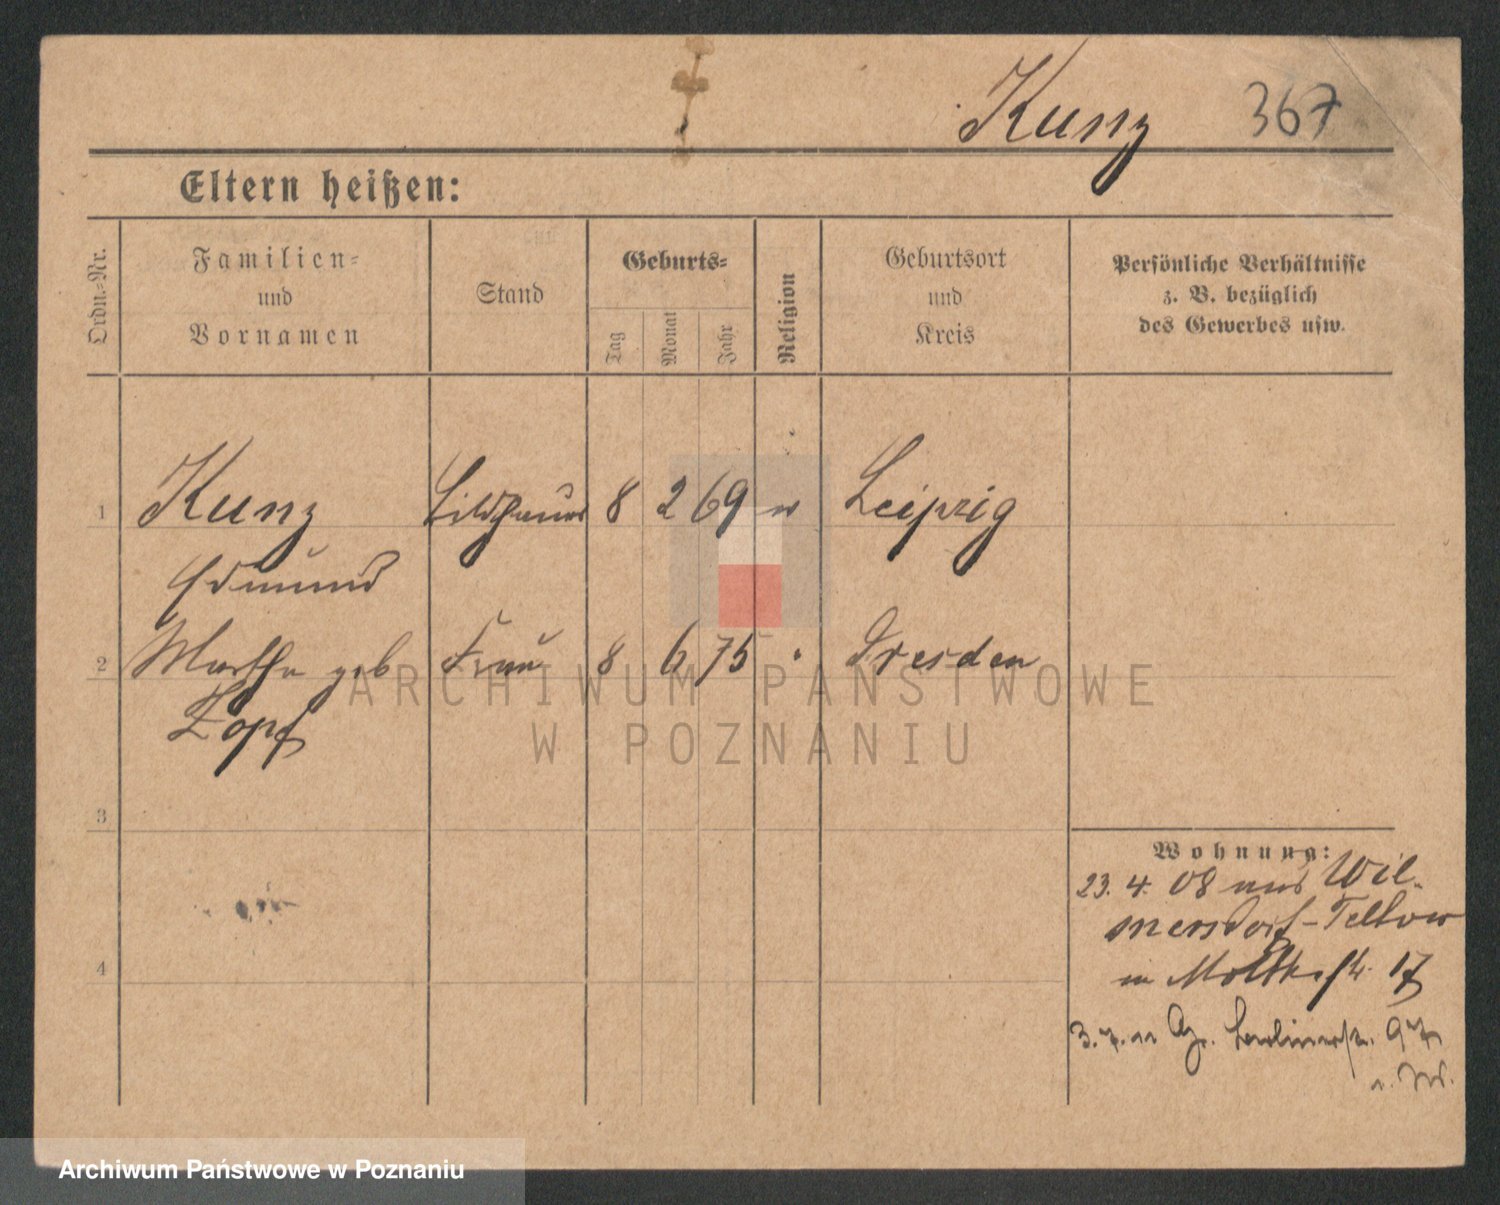 Kunz 367
Eltern heißen:
Ordn.-Nr.
Familien-
und
Vornamen
Stand
Geburts-
Tag
Monat
Jahr
Religion
Geburtsort
und
Kreis
Persönliche Verhältnisse
z. B. bezüglich
des Gewerbes usw.
1 Kunz Bildhauer 8 2 69 Leipzig
Edmund
2 Martha geb Frau 8 6 75 Dresden
Zopf
3
4
Wohnung:
23. 4. 08 aus Wil-
mersdorf-Teltow
in Moltkestr. 17
3. 7. Berlinerstr. 97
ARCHIWUM PAŃSTWOWE
W POZNANIU
Archiwum Państwowe w Poznaniu